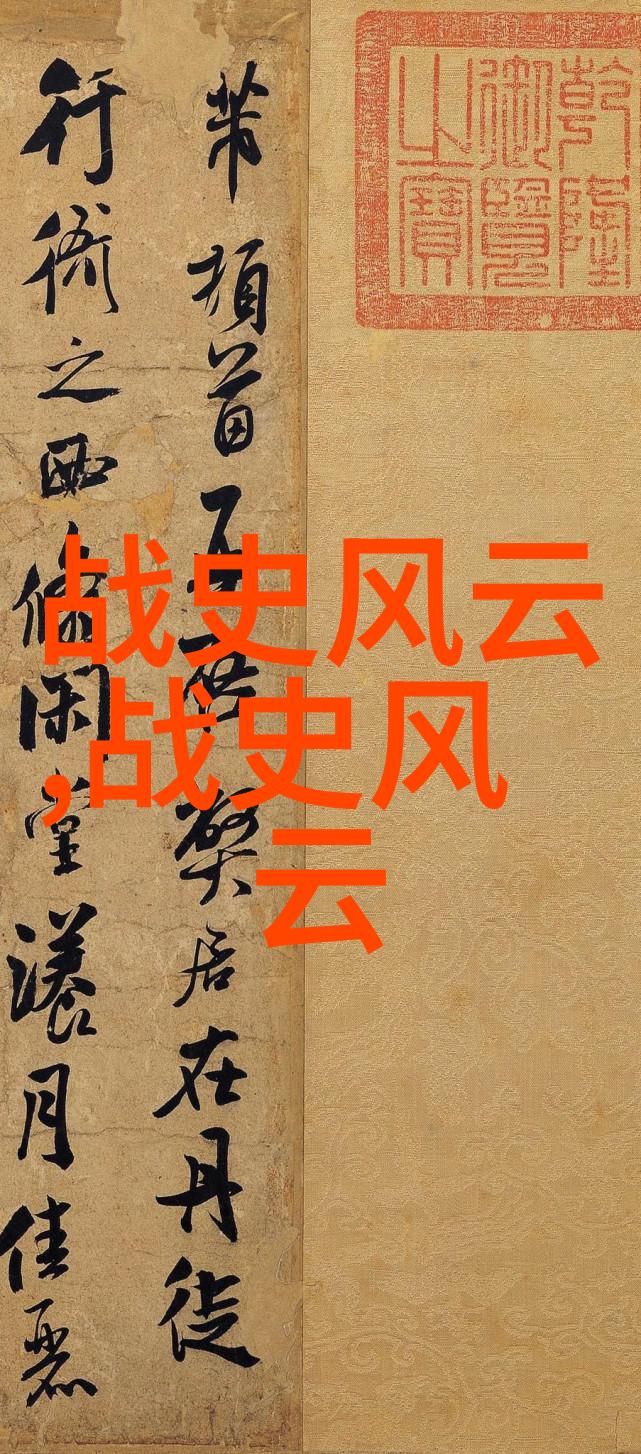 乾隆
御覽
之寶
芾頓首再 弊居在丹徒
行衙之西翛閑堂漾月佳麗
战史风云
,战史风
云